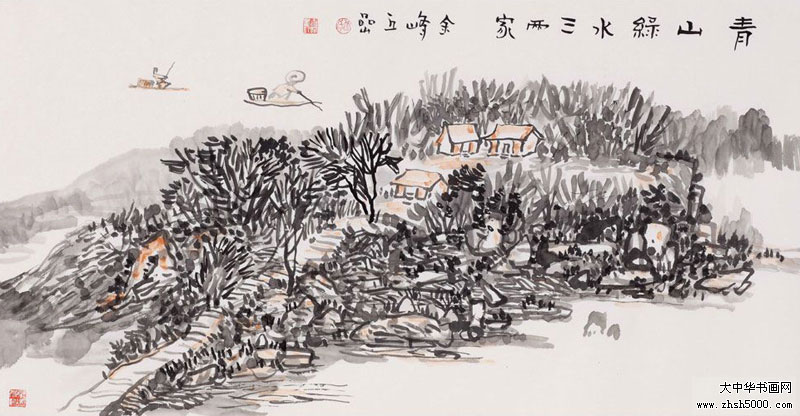 青山綠水三兩家 峰
大中华书画网
www.zhsh5000.com